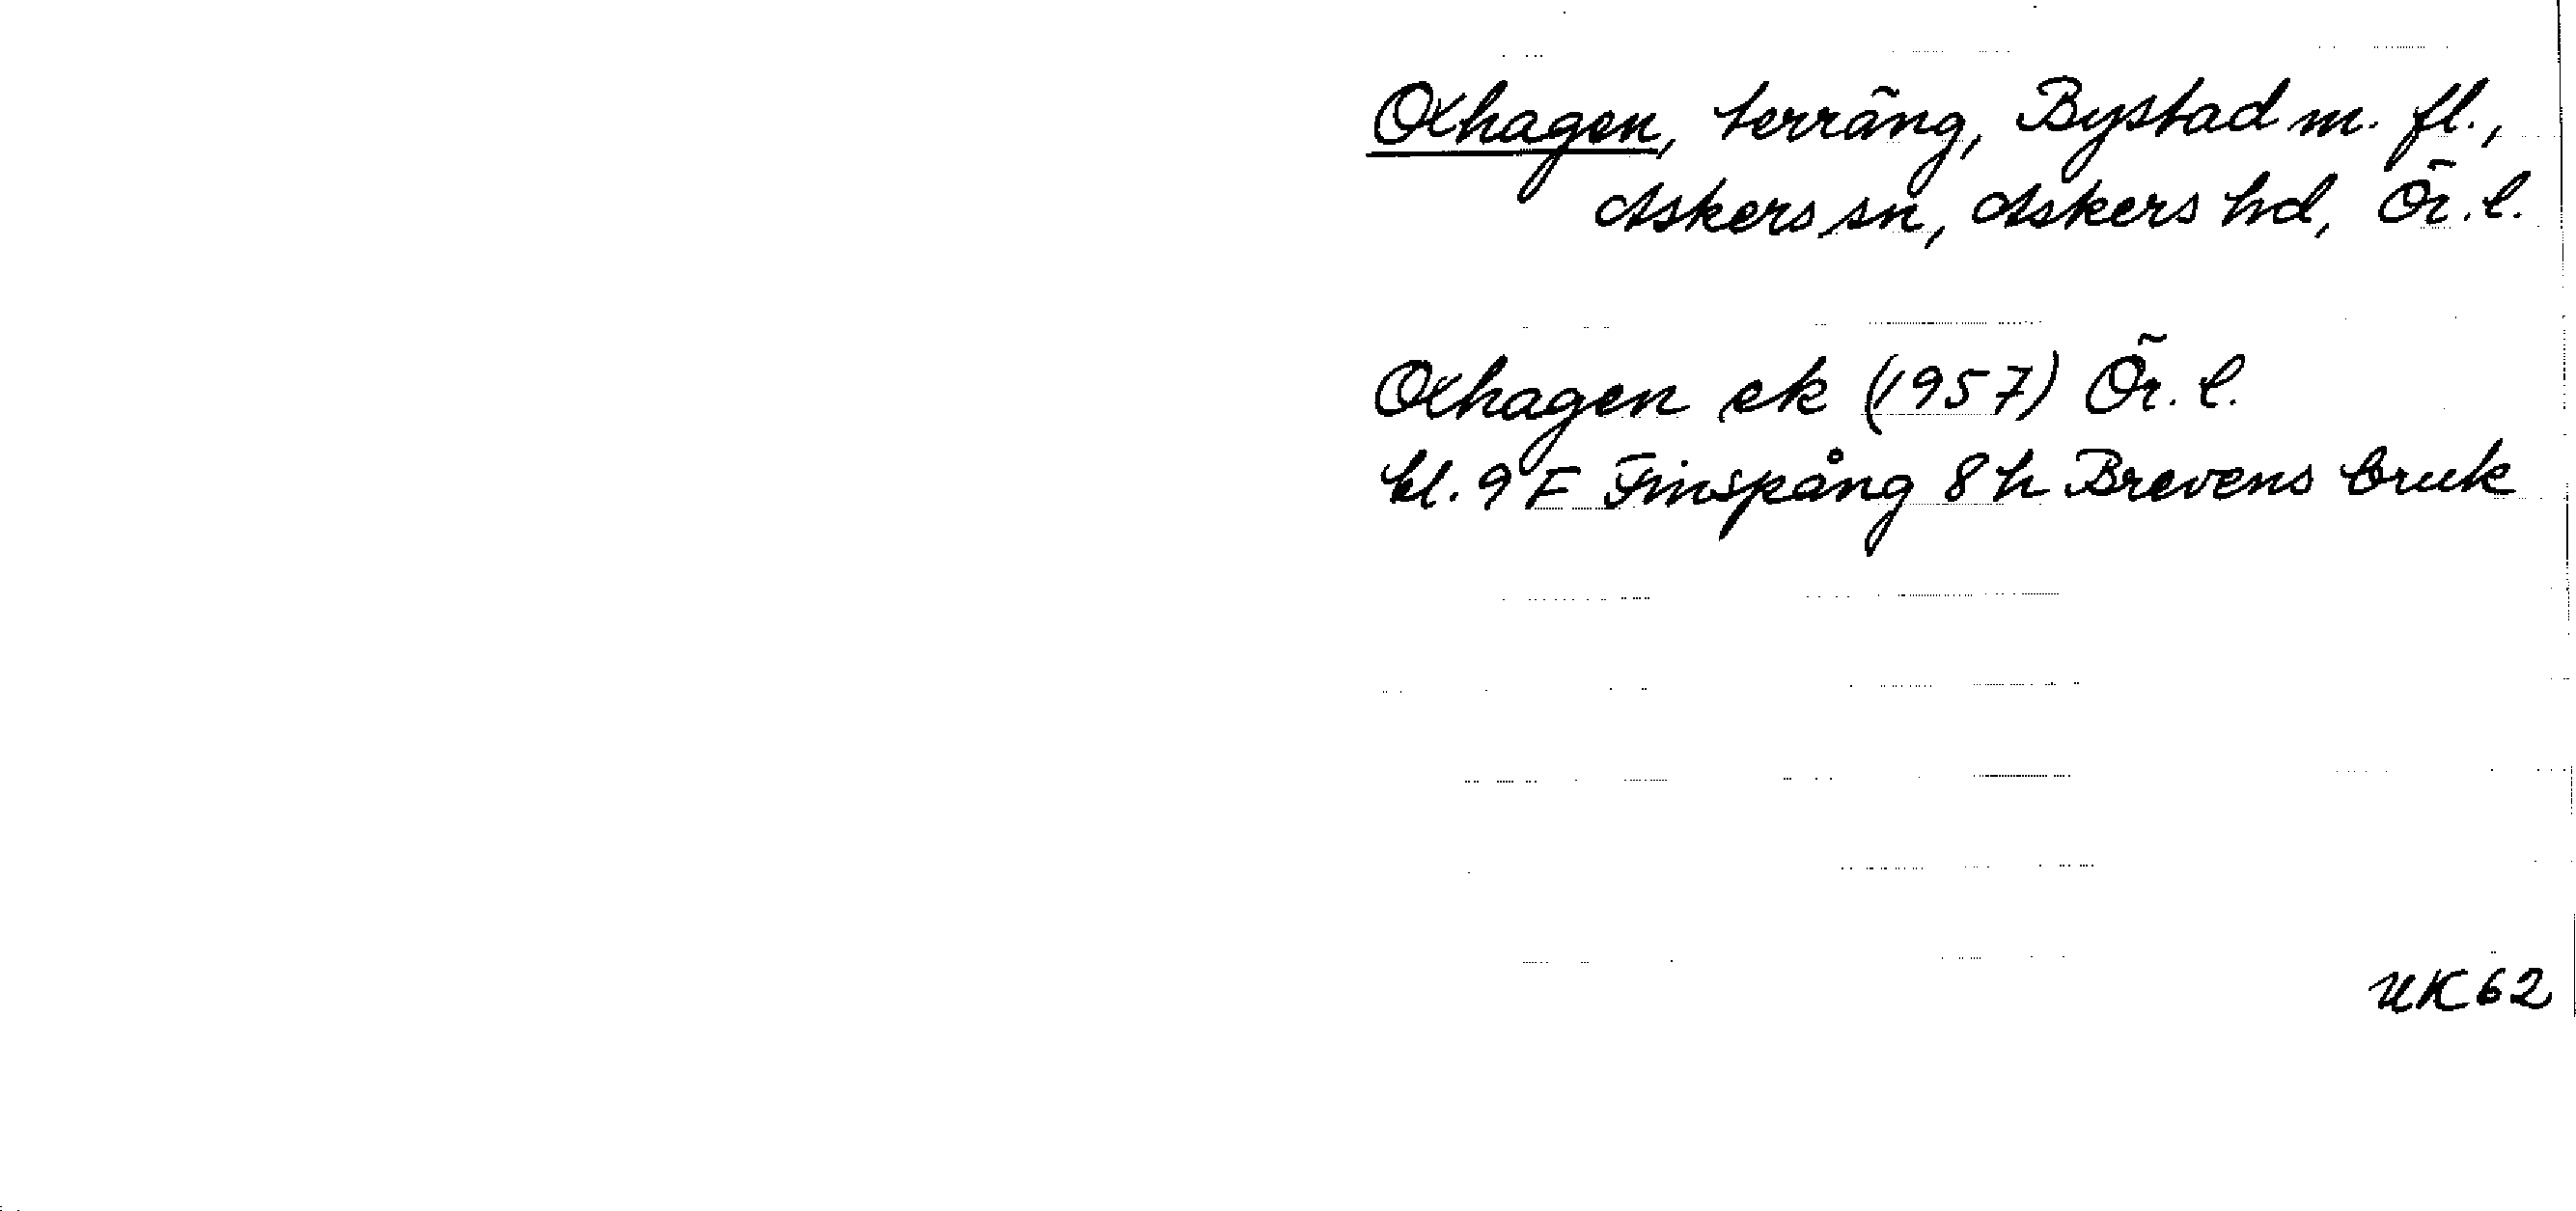 Oxhagen, terräng, Bystad m. fl.,
Askers sn, Askers hd, Ör. l.
Oxhagen ek (1957) Ör. l.
bl. 9 F Finspång 8 h Brevens bruk
UK 62